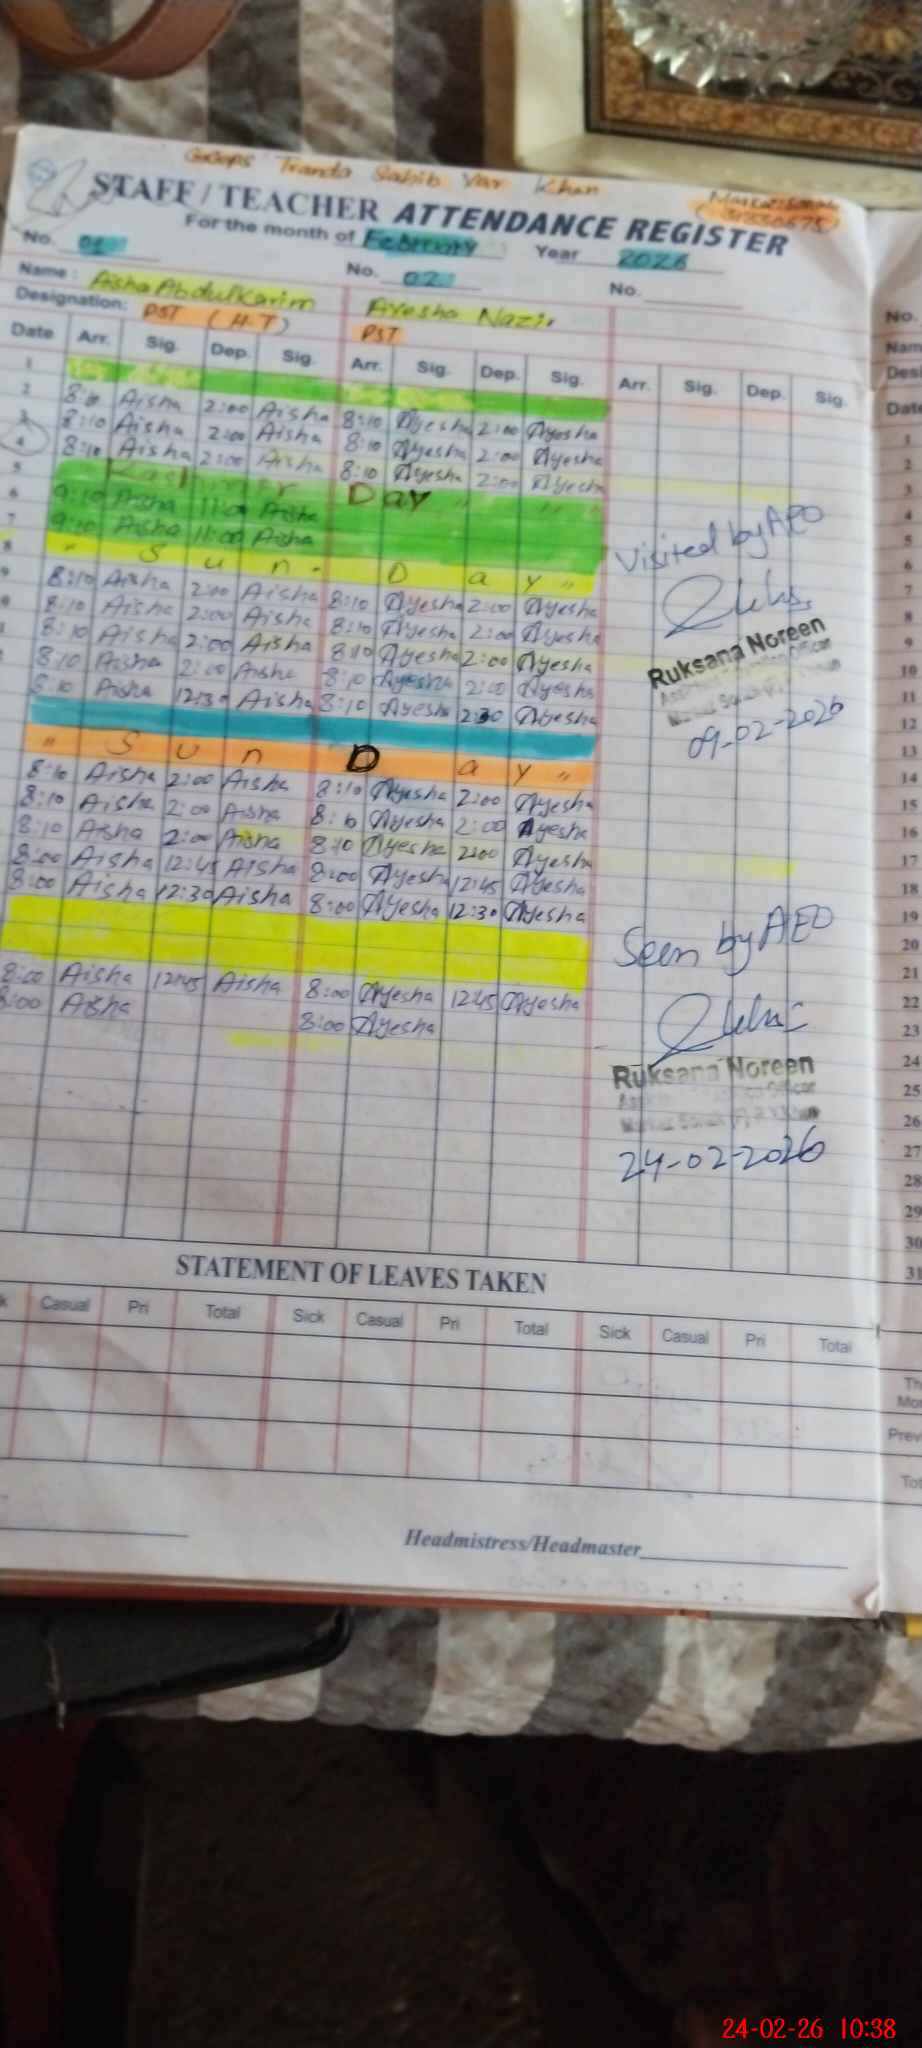 GGCPS Tranda Sahib Yar Khan
STAFF / TEACHER ATTENDANCE REGISTER
For the month of February Year 2026
No. 01 No. 02 No.
Name : Aisha Abdul Karim Ayesha Nazir
Designation: PST (H.T) PST
Date Arr. Sig. Dep. Sig. Arr. Sig. Dep. Sig. Arr. Sig. Dep. Sig.
1
2 8:10 Aisha 2:00 Aisha 8:10 Ayesha 2:00 Ayesha
3 8:10 Aisha 2:00 Aisha 8:10 Ayesha 2:00 Ayesha
4 8:10 Aisha 2:00 Aisha 8:10 Ayesha 2:00 Ayesha
5 Kashmir Day " " "
6 9:10 Aisha 11:00 Aisha
7 9:10 Aisha 11:00 Aisha
8 " S u n - D a y "
9 8:10 Aisha 2:00 Aisha 8:10 Ayesha 2:00 Ayesha
8:10 Aisha 2:00 Aisha 8:10 Ayesha 2:00 Ayesha
8:10 Aisha 2:00 Aisha 8:10 Ayesha 2:00 Ayesha
8:10 Aisha 2:00 Aisha 8:10 Ayesha 2:00 Ayesha
8:10 Aisha 12:30 Aisha 8:10 Ayesha Ayesha
" S u n D a y "
8:10 Aisha 2:00 Aisha 8:10 Ayesha 2:00 Ayesha
8:10 Aisha 2:00 Aisha 8:10 Ayesha 2:00 Ayesha
8:10 Aisha 2:00 Aisha 8:10 Ayesha 2:00 Ayesha
8:00 Aisha 12:45 Aisha 8:00 Ayesha 12:45 Ayesha
8:00 Aisha 12:30 Aisha 8:00 Ayesha 12:30 Ayesha
8:00 Aisha 12:45 Aisha 8:00 Ayesha 12:45 Ayesha
8:00 Aisha 8:00 Ayesha
Visited by AEO
Ruksana Noreen
09-02-2026
Seen by AEO
Ruksana Noreen
24-02-2026
STATEMENT OF LEAVES TAKEN
Casual Pri Total Sick Casual Pri Total Sick Casual Pri Total
Headmistress/Headmaster
No.
Date
1
2
3
4
5
6
7
8
9
10
11
12
13
14
15
16
17
18
19
20
21
22
23
24
25
26
27
28
29
30
31
24-02-26 10:38